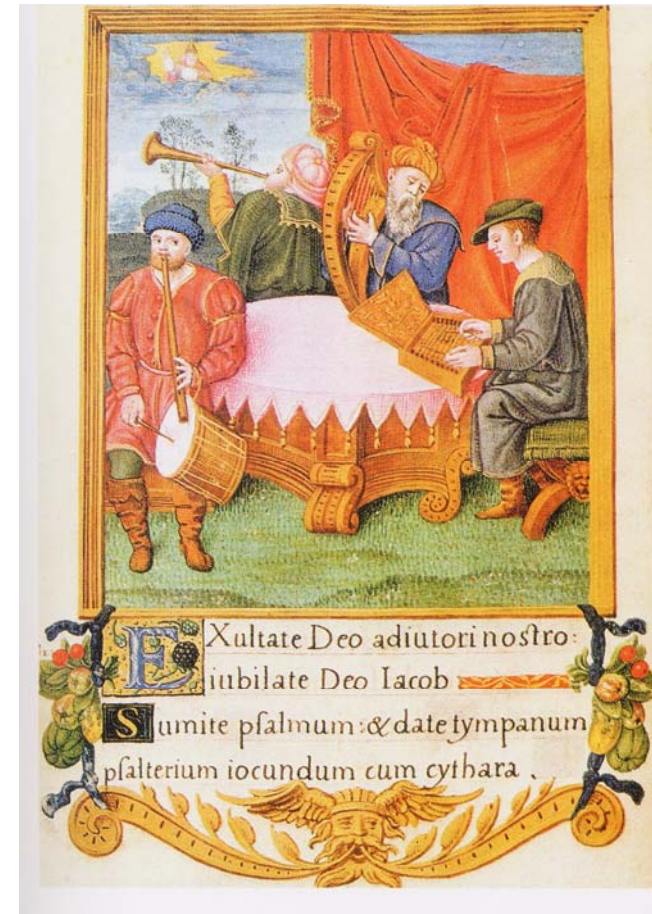 EXultate Deo adiutori nostro:
iubilate Deo Iacob
Sumite pſalmum: & date tympanum
pſalterium iocundum cum cythara.